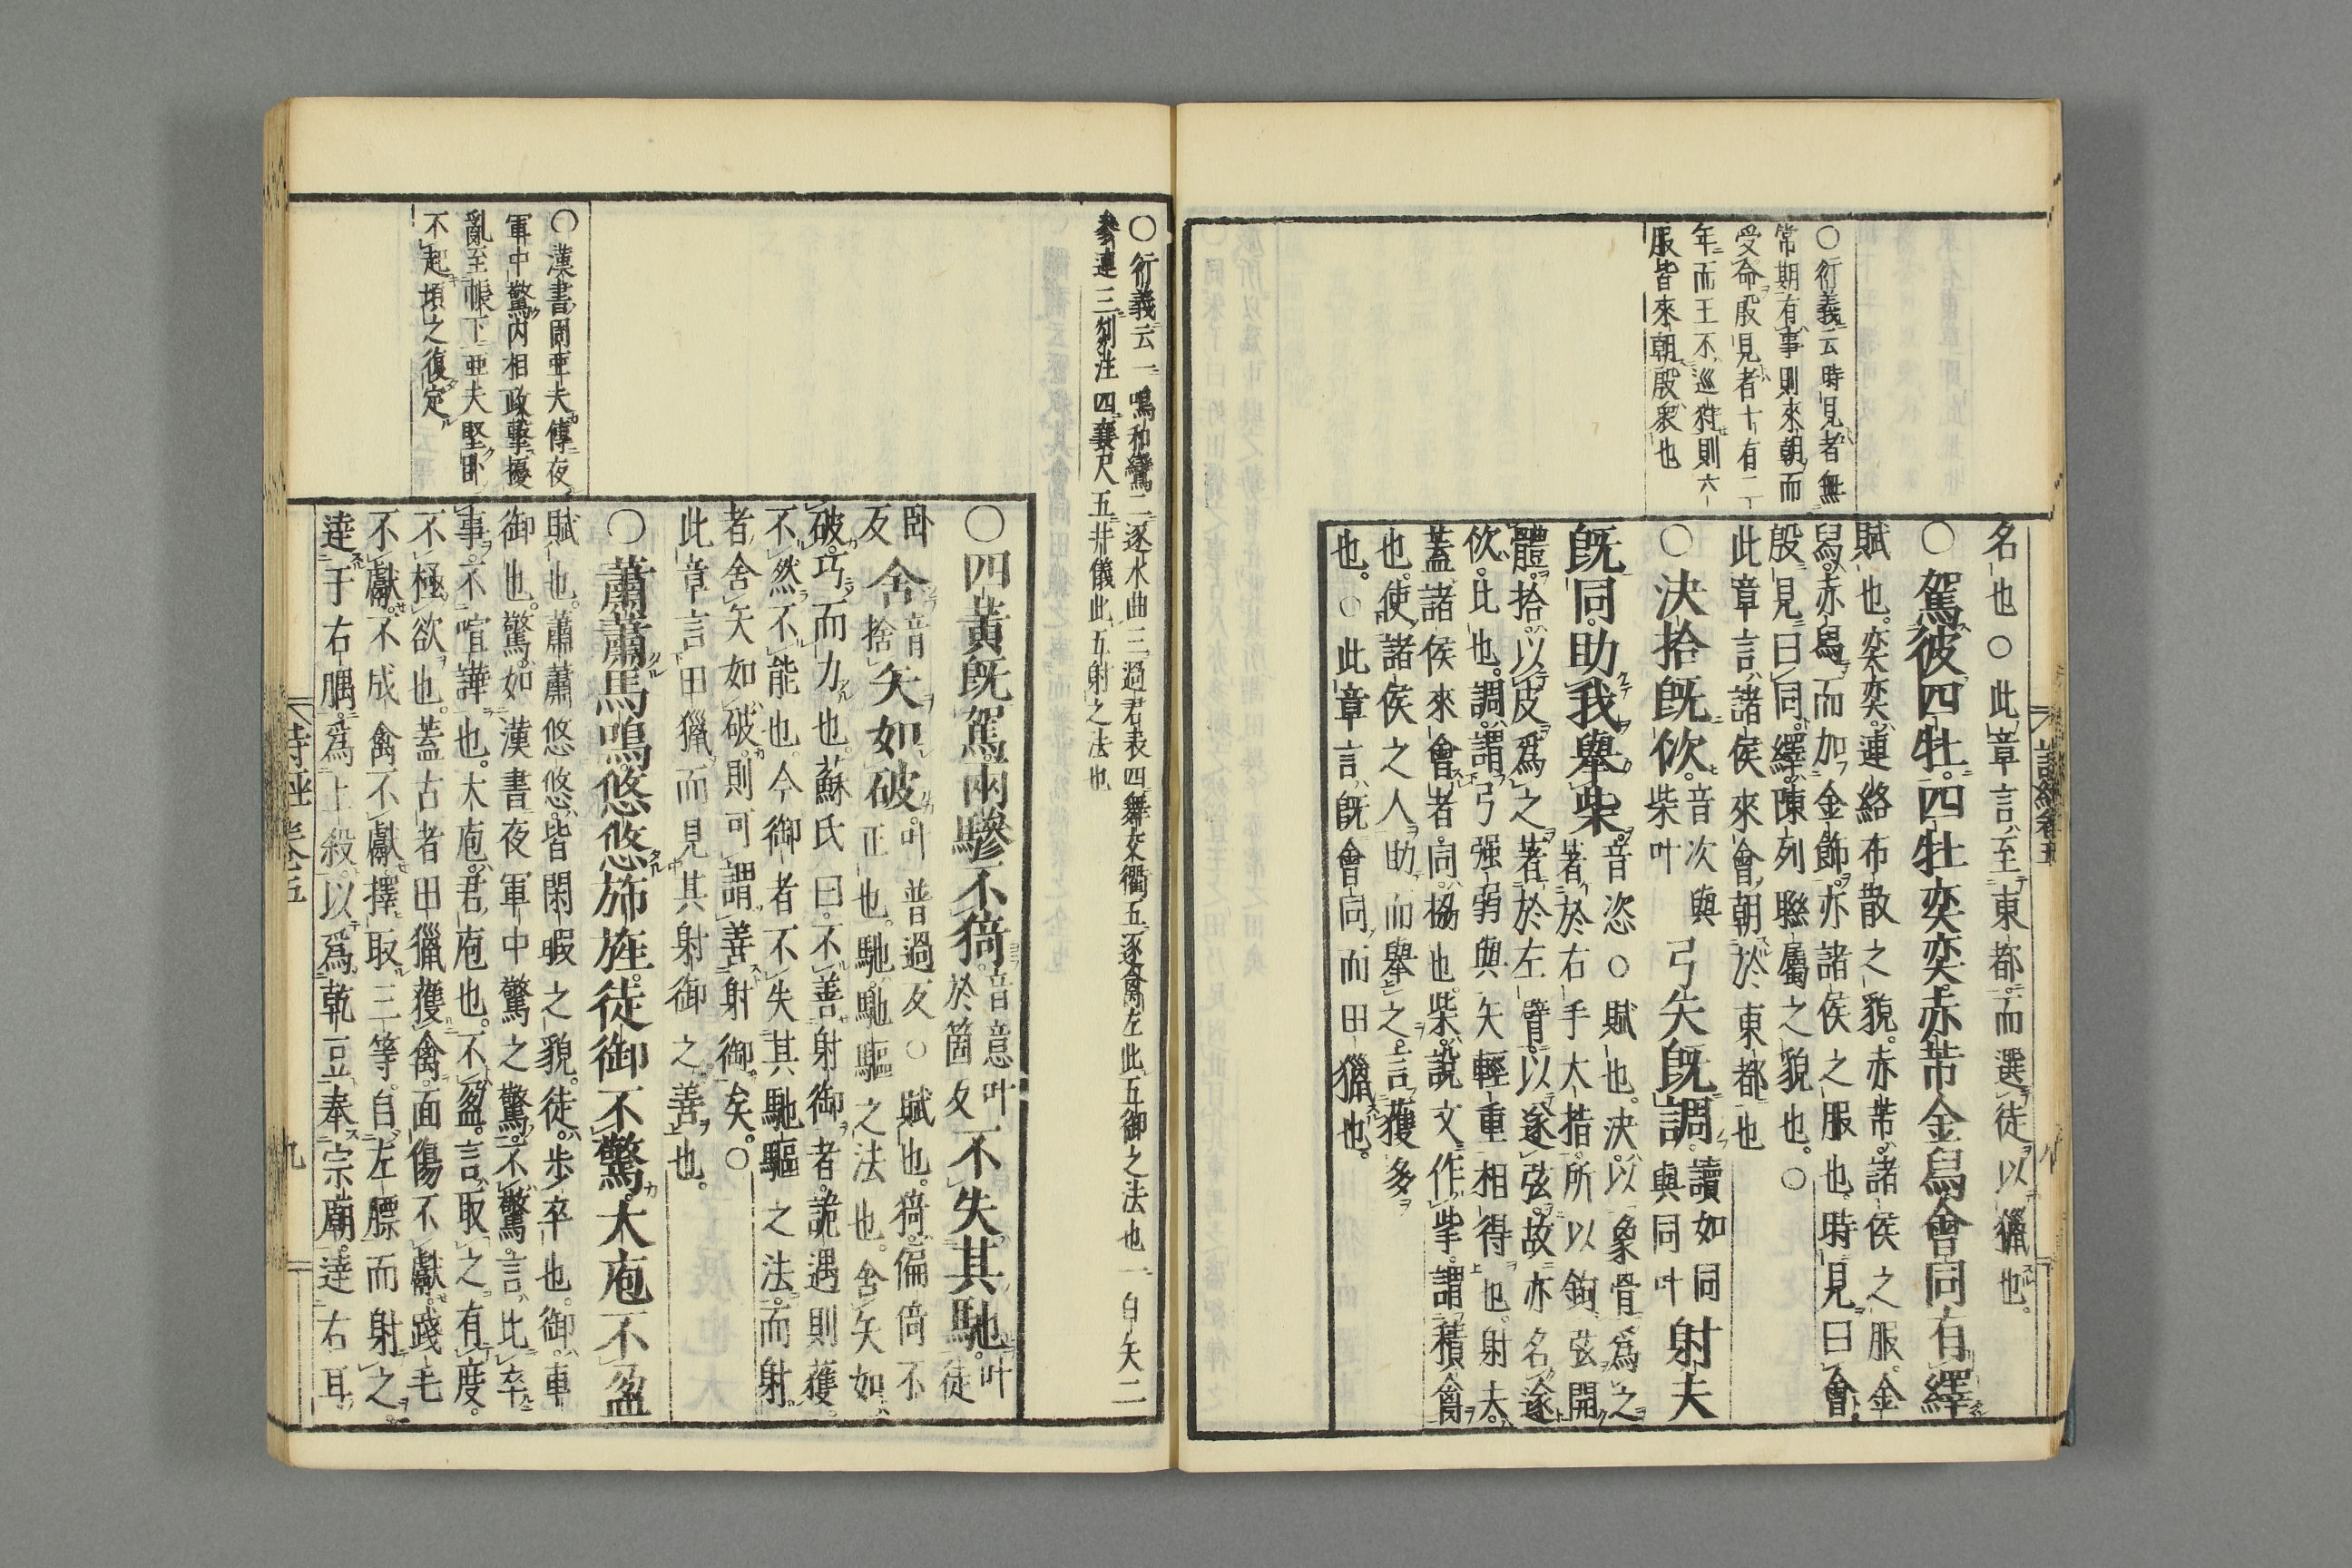 ○衍義云時見者無
常期有事則來朝而
受命殷見者十有二
年而王不巡狩則六
服皆來朝殷衆也
名也○此章言至東都而選徒以獵也
○駕彼四牡四牡奕奕赤芾金舄會同有繹
賦也奕奕連絡布散之貌赤芾諸侯之服金
舄赤舄而加金飾亦諸侯之服也時見曰會
殷見曰同繹陳列聯屬之貌也○
此章言諸侯來會朝於東都也
○決拾既佽音次與柴叶弓矢既調讀如同與同叶射夫
既同助我舉柴音恣○賦也決以象骨爲之
著於右手大指所以鉤弦開
體拾以皮爲之著於左臂以遂弦故亦名遂
佽比也調謂弓强弱與矢輕重相得也射夫
蓋諸侯來會者同協也柴說文作㧘謂積禽
也使諸侯之人助而舉之言獲多
也○此章言既會同而田獵也
詩經卷五
八
○衍義云一鳴和鸞二逐水曲三過君表四舞交衢五逐禽左此五御之法也一白矢二
參連三剡注四襄尺五井儀此五射之法也
○漢書周亞夫傳夜
軍中驚内相攻擊擾
亂至帳下亞夫堅卧
不起頃之復定
○四黃既駕兩驂不猗音意叶於箇反不失其馳叶徒
卧反舍音捨矢如破叶普過反○賦也猗偏倚不
正也馳馳驅之法也舍矢如
破巧而力也蘇氏曰不善射御者詭遇則獲
不然不能也今御者不失其馳驅之法而射
者舍矢如破則可謂善射御矣○
此章言田獵而見其射御之善也
○蕭蕭馬鳴悠悠旆旌徒御不驚大庖不盈
賦也蕭蕭悠悠皆閑暇之貌徒步卒也御車
御也驚如漢書夜軍中驚之驚不驚言比卒
事不喧譁也大庖君庖也不盈言取之有度
不極欲也蓋古者田獵獲禽面傷不獻踐毛
不獻不成禽不獻擇取三等自左膘而射之
達于右腢爲上殺以爲乾豆奉宗廟達右耳
詩經卷五
九